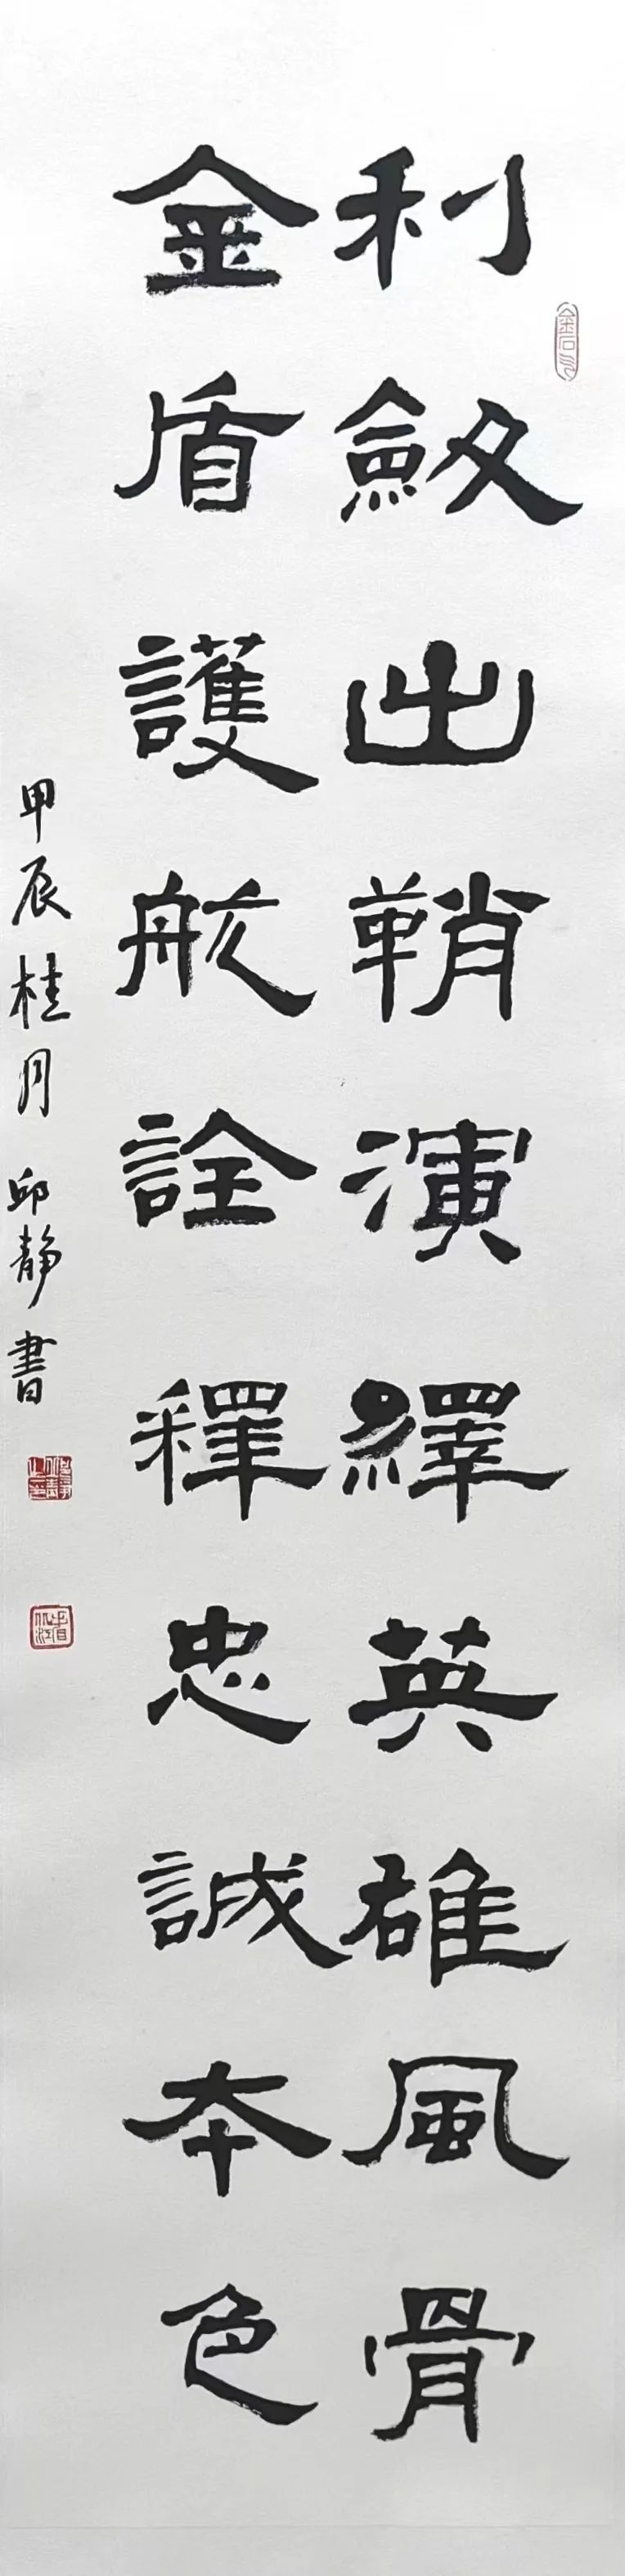 利斂出鞘演繹英雄風骨
金盾護航詮釋忠誠本色
甲辰桂月邱静書